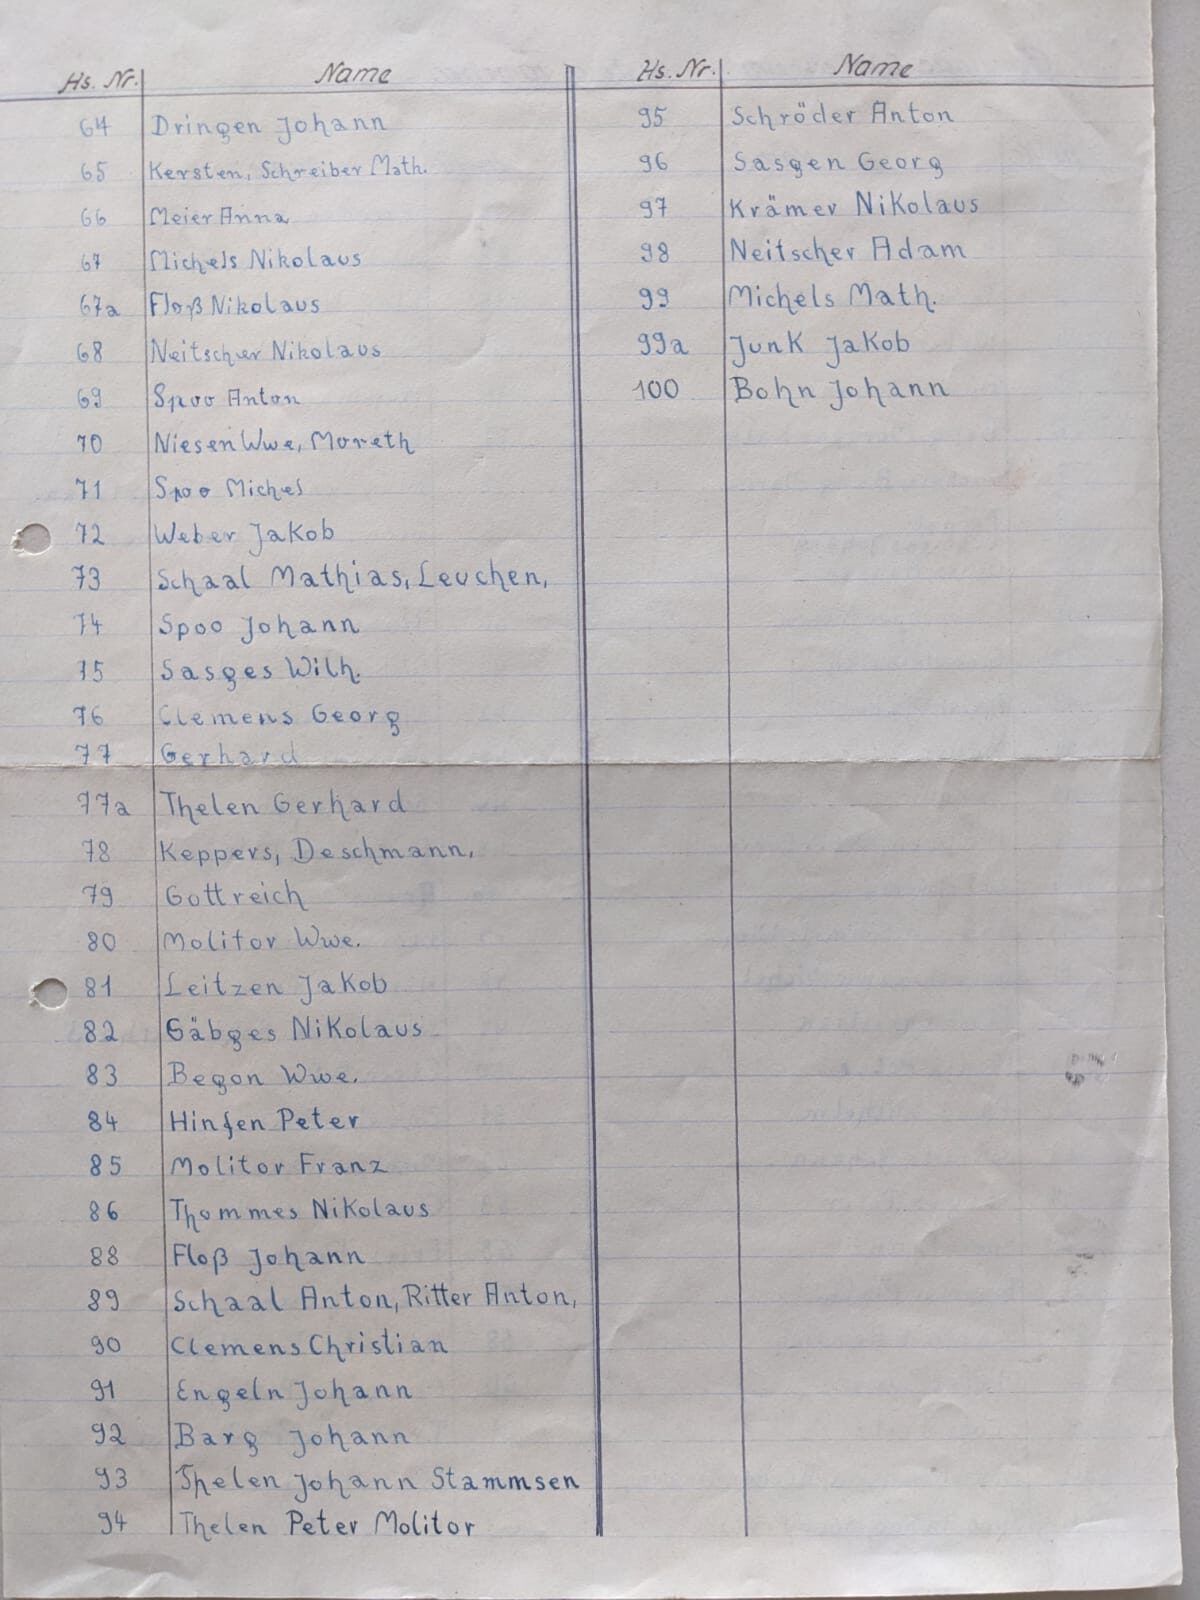 Hs. Nr. Name
64 Dringen Johann
65 Kersten, Schreiber Math.
66 Meier Anna
67 Michels Nikolaus
67a Floß Nikolaus
68 Neitscher Nikolaus
69 Spoo Anton
70 Niesen Wwe, Moreth
71 Spoo Michel
72 Weber Jakob
73 Schaal Mathias, Leuchen,
74 Spoo Johann
75 Sasges Wilh.
76 Clemens Georg
77 Gerhard
77a Thelen Gerhard
78 Keppers, Deschmann,
79 Gottreich
80 Molitor Wwe.
81 Leitzen Jakob
82 Gäbges Nikolaus
83 Begon Wwe.
84 Hinsen Peter
85 Molitor Franz
86 Thommes Nikolaus
88 Floß Johann
89 Schaal Anton, Ritter Anton,
90 Clemens Christian
91 Engeln Johann
92 Barg Johann
93 Thelen Johann Stammsen
94 Thelen Peter Molitor
Hs. Nr. Name
95 Schröder Anton
96 Sasgen Georg
97 Krämer Nikolaus
98 Neitscher Adam
99 Michels Math.
99a Junk Jakob
100 Bohn Johann